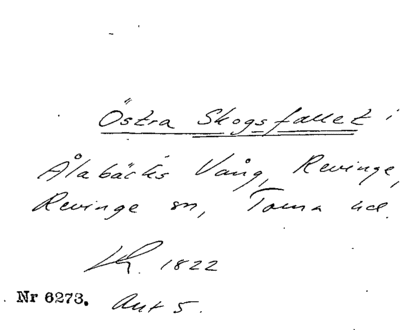 Östra Skogsfallet i
Ålabäcks Vång, Revinge,
Revinge sn, Torna hd.
Lh. 1822
Nr 6273. Akt 5.